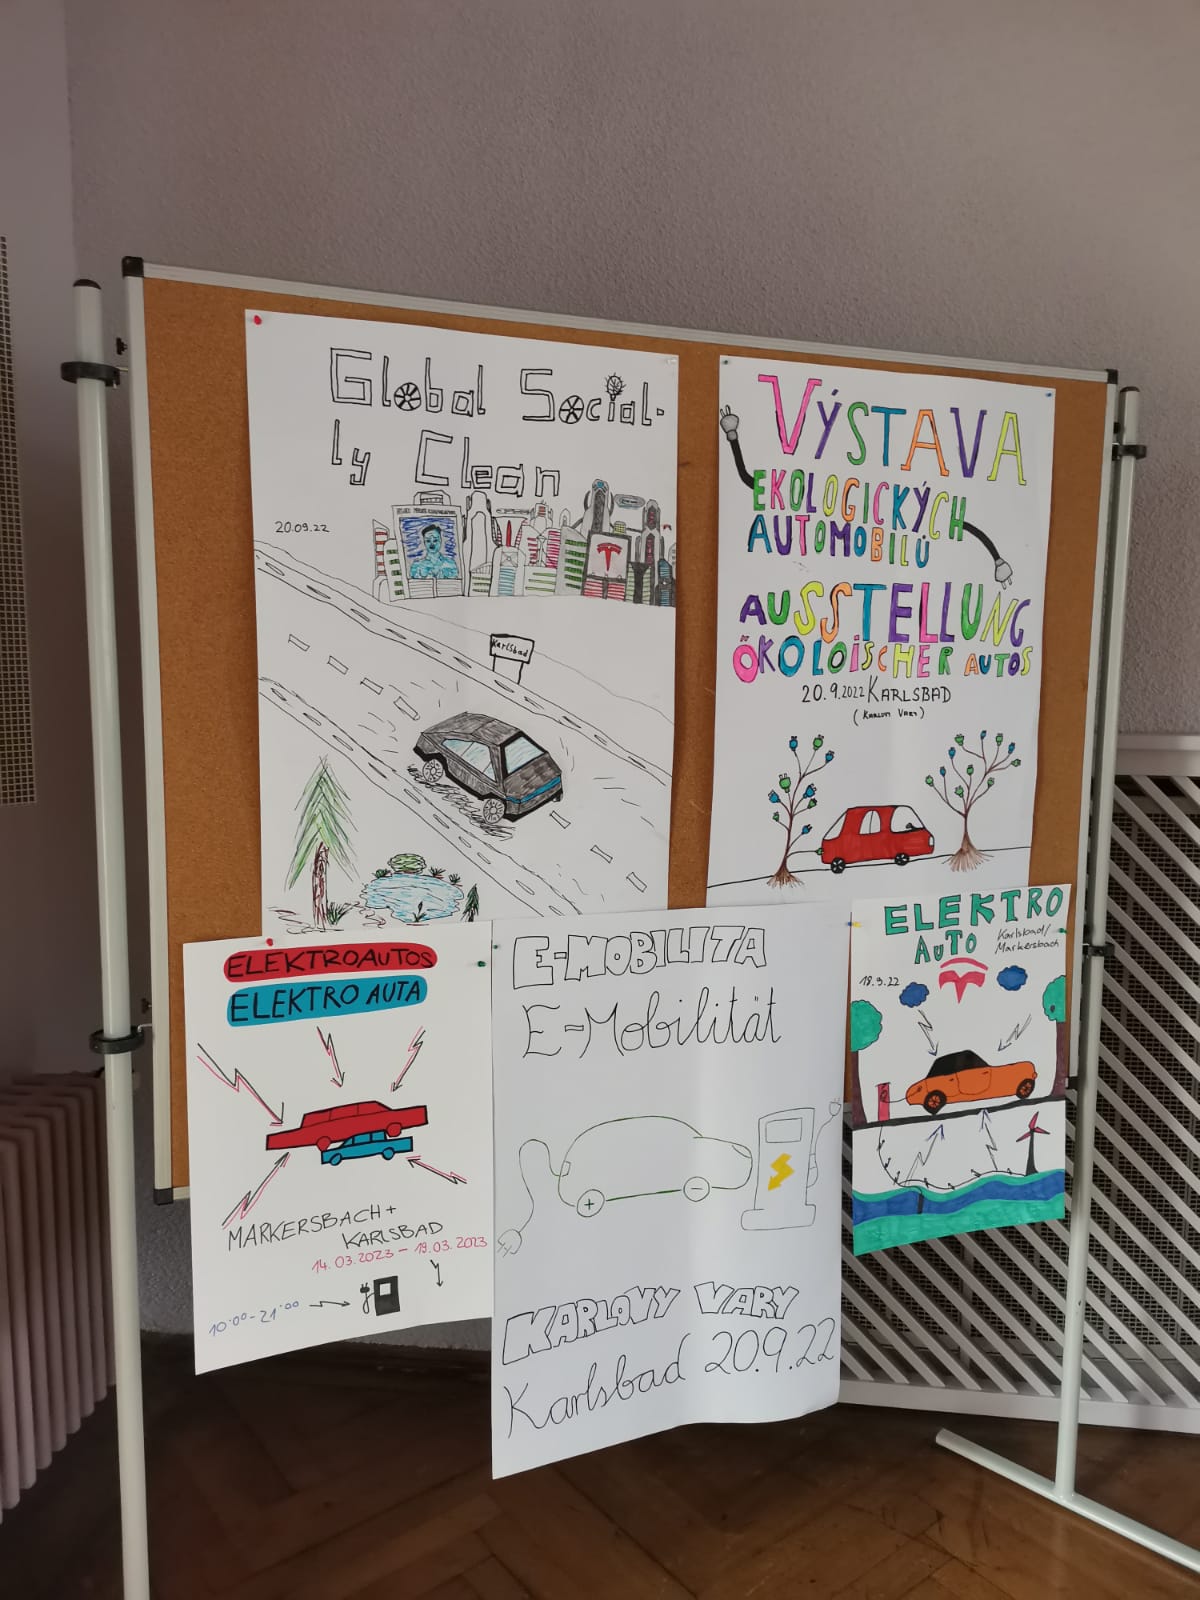 Global Social-
ly Clean
20.09.22
Karlsbad
VÝSTAVA
EKOLOGICKÝCH
AUTOMOBILŮ
AUSSTELLUNG
ÖKOLOISCHER AUTOS
20.9.2022 KARLSBAD
(KARLOVY VARY)
ELEKTROAUTOS
ELEKTRO AUTA
MARKERSBACH +
KARLSBAD
14.03.2023 - 19.03.2023
10:00 - 21:00
E-MOBILITA
E-Mobilität
+
-
KARLOVY VARY
Karlsbad 20.9.22
ELEKTRO
AUTO
Karlsbad/
Markersbach
18.9.22